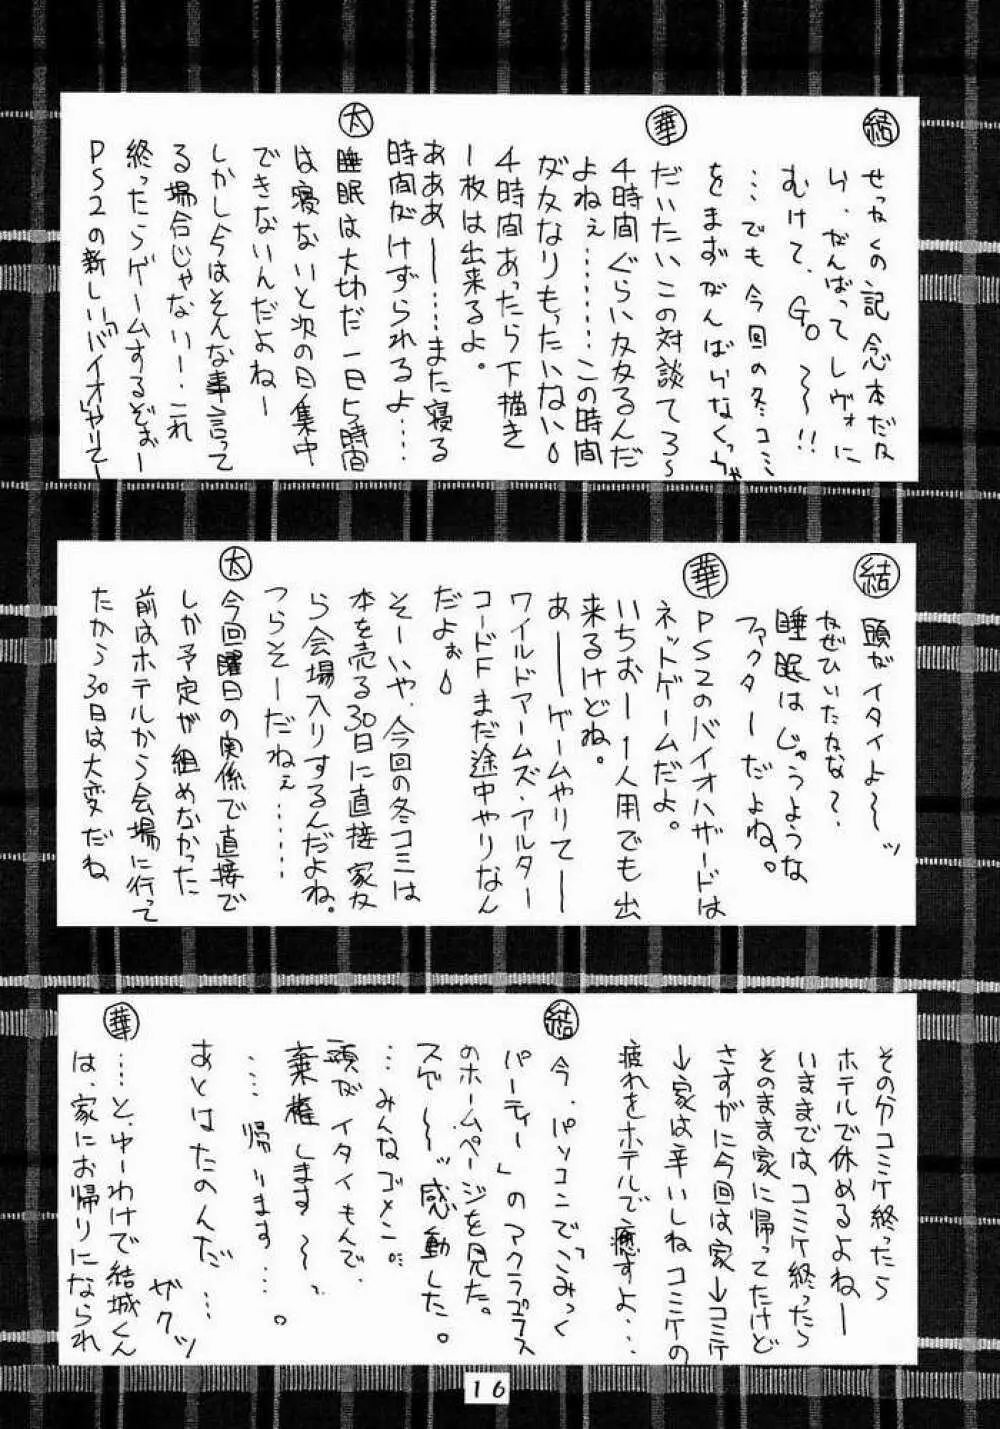 結
せっかくの記念本だな
い、がんばってレヴォに
むけて、GO〜〜!!
…でも今回の冬コミ
をまずがんばらなくっちゃ
華
だいたいこの対談てろ〜
4時間ぐらい友友るんだ
よねぇ………この時間
ダメなりもったいない
4時間あったら下描き
一枚は出来るよ。
あああー……また寝る
時間がけずられるよ……
太
睡眠は大切だ一日5時間
は寝ないと次の日集中
できないんだよねー
しかし今はそんな事言って
る場合じゃないー・これ
終ったらゲームするぞぉー
PS2の新しい「バイオ」やりてー
結
頭がイタイよ〜ッ
なぜひいたなな〜?
睡眠はじゅうような
ファクターだよね。
華
PS2のバイオハザードは
ネットゲームだよ。
いちおー1人用でも出
来るけどね。
あーーゲームやりてー
ワイルドアームズ・アルター
コードFまだ途中やりなん
だよぉ
そーいや、今回の冬コミは
本を売る30日に直接家か
ら会場入りするんだよね。
つらそーだねぇ……
太
今回曜日の関係で直接で
しか予定が組めなかった
前はホテルから会場に行って
たから30日は大変だね
その分コミケ終ったら
ホテルで休めるよねー
いままではコミケ終ったら
そのまま家に帰ってたけど
さすがに今回は家→コミケ
→家は辛いしね コミケの
疲れをホテルで癒すよ…
結
今、パソコンで「こみっく
パーティー」のアクアプラス
のホームページを見た。
スゲ〜〜ッ感動した。
…みんなゴメン。
頭がイタイもんで、
棄権します〜っ
…帰ります…。
あとはたのんだ…
ザクッ
華
……と、ゆーわけで結城くん
は、家にお帰りになられ
16